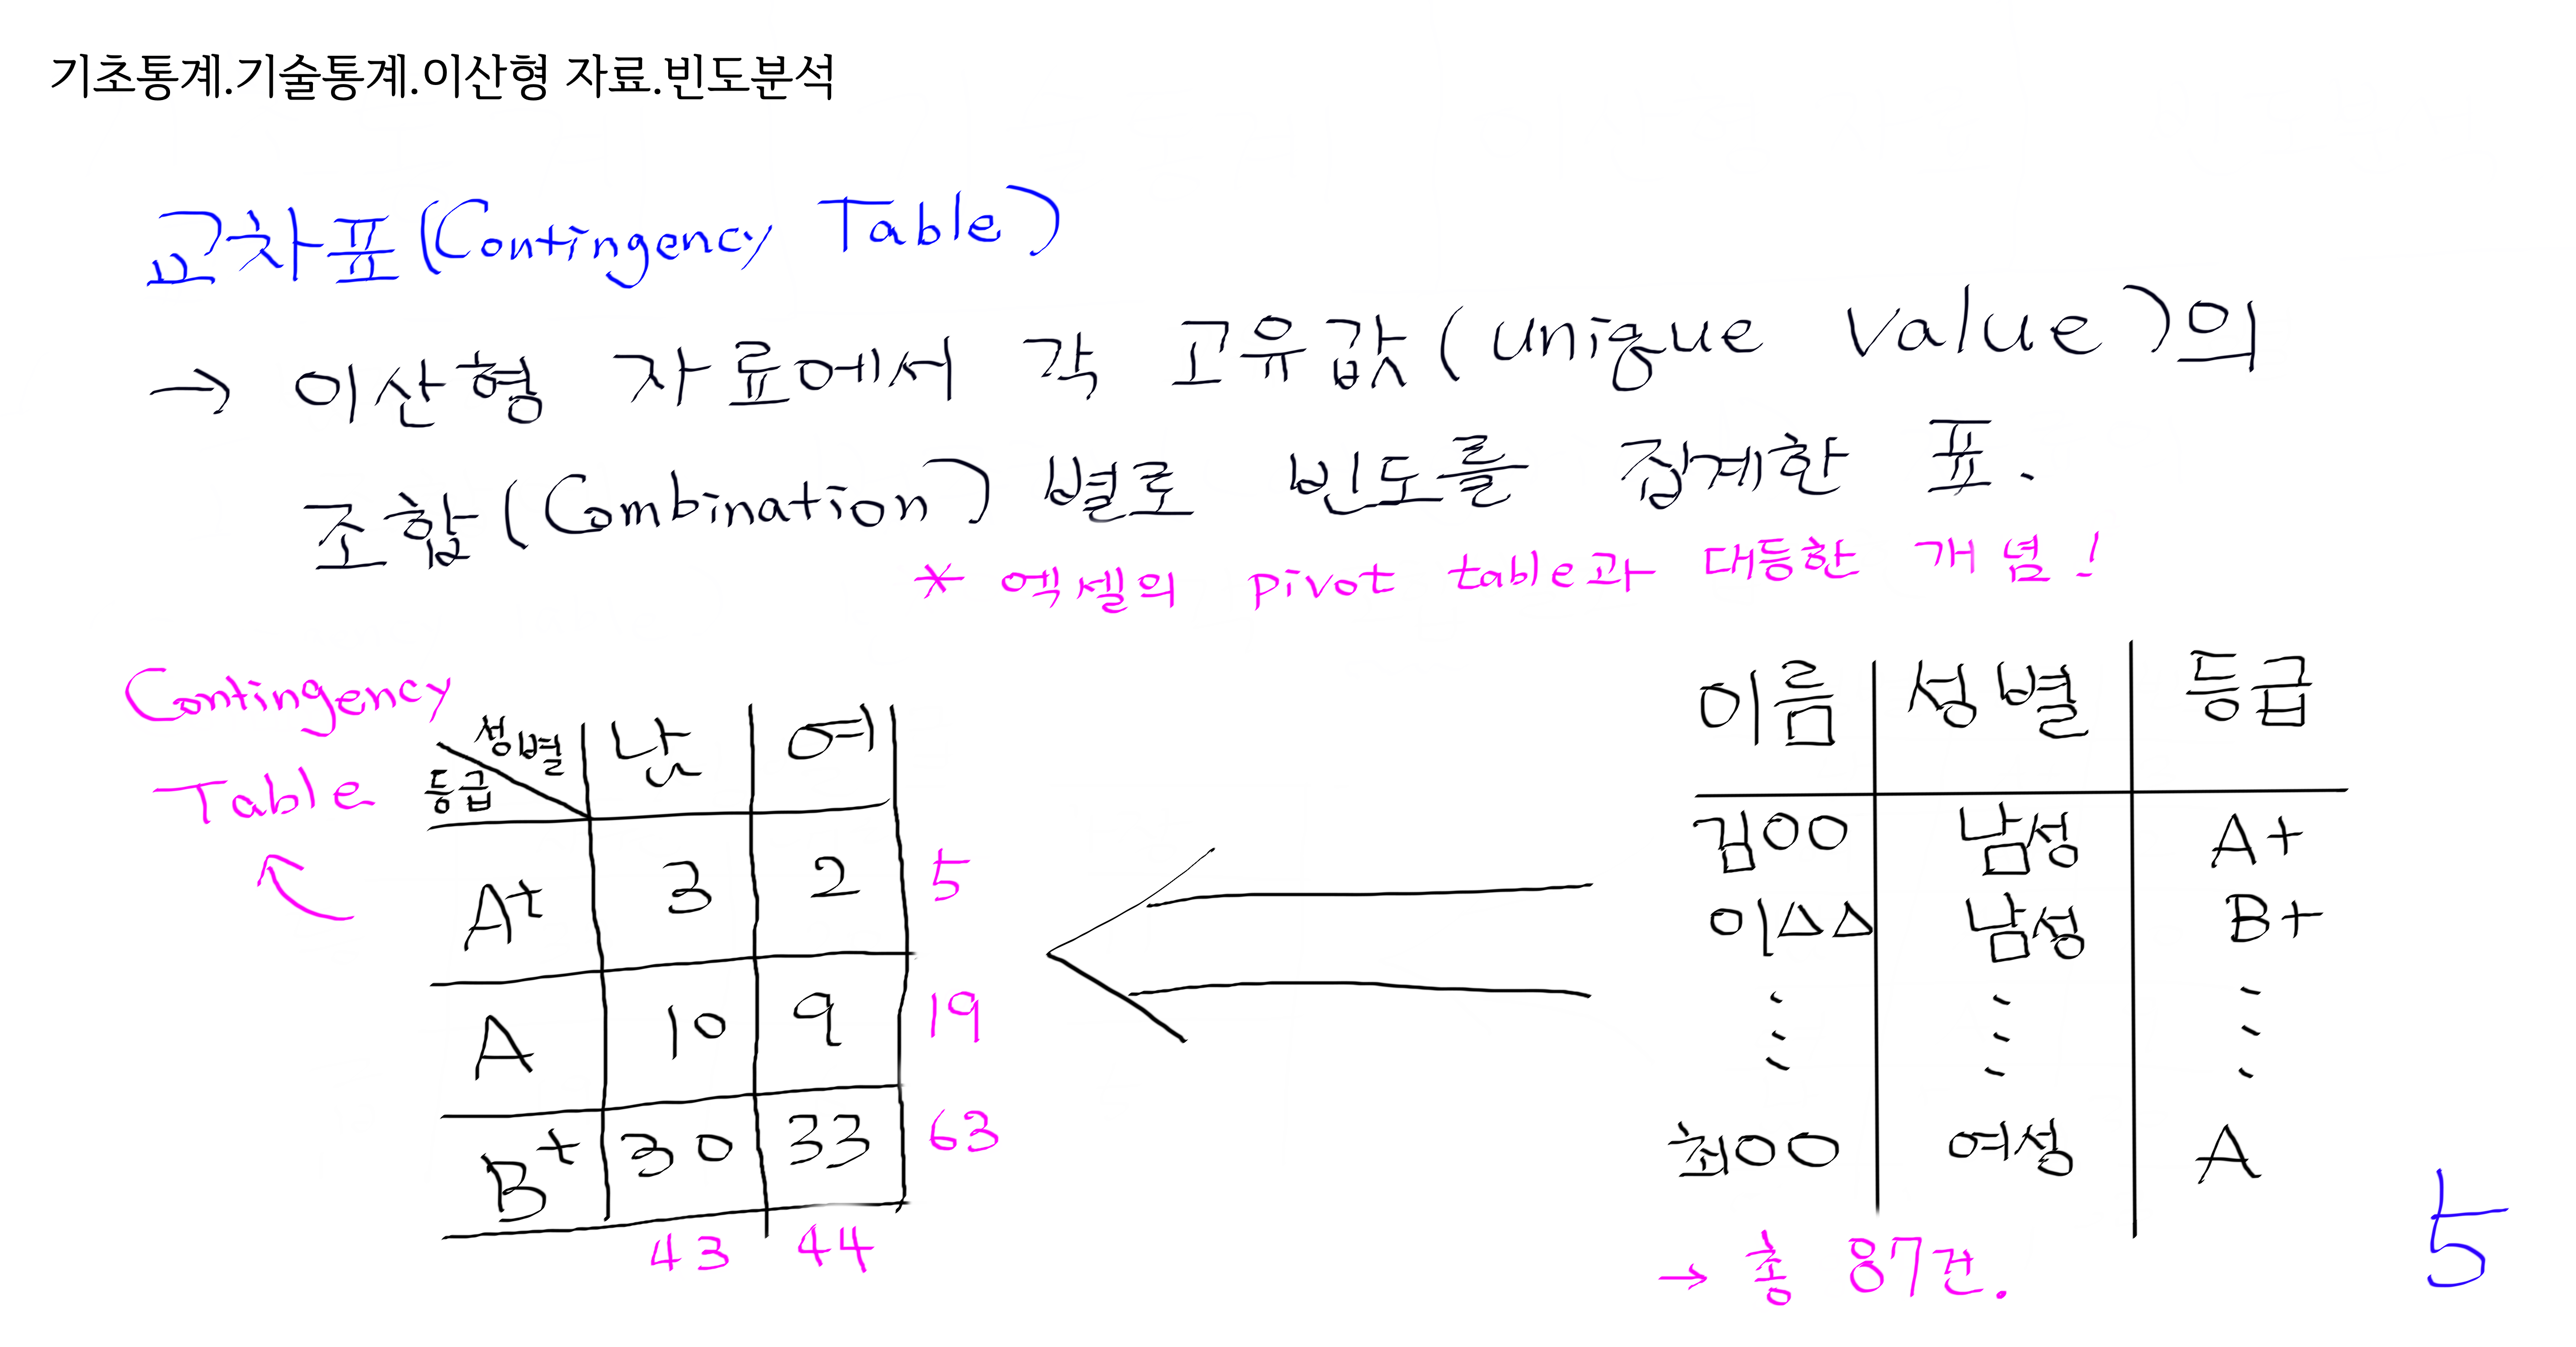 기초통계.기술통계.이산형 자료.빈도분석
교차표(Contingency Table)
→ 이산형 자료에서 각 고유값(unique value)의
조합(Combination) 별로 빈도를 집계한 표.
* 엑셀의 pivot table과 대등한 개념!
Contingency
Table
성별 남 여
등급
A+ 3 2 5
A 10 9 19
B+ 30 33 63
43 44
이름 성별 등급
김OO 남성 A+
이△△ 남성 B+
⋮ ⋮ ⋮
최OO 여성 A
→ 총 87건.
5